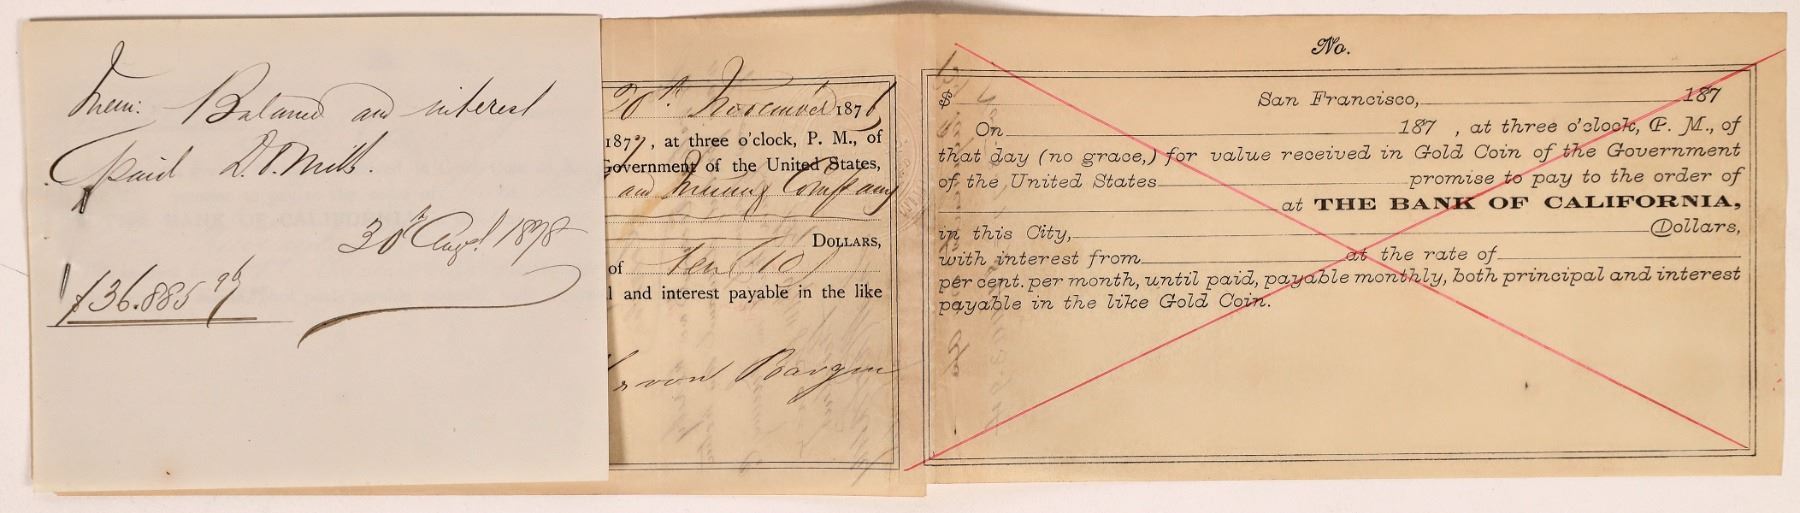 Mem: Balance and interest
paid D.O. Mills.
30th Augt 1878
$36.885 96
20th November 1876
1877, at three o'clock, P. M., of
Government of the United States,
and Mining Company
DOLLARS,
of Ten (10)
l and interest payable in the like
No.
$
San Francisco, 187
On 187 , at three o'clock, P. M., of
that day (no grace,) for value received in Gold Coin of the Government
of the United States promise to pay to the order of
at THE BANK OF CALIFORNIA,
in this City, Dollars,
with interest from at the rate of
per cent. per month, until paid, payable monthly, both principal and interest
payable in the like Gold Coin.